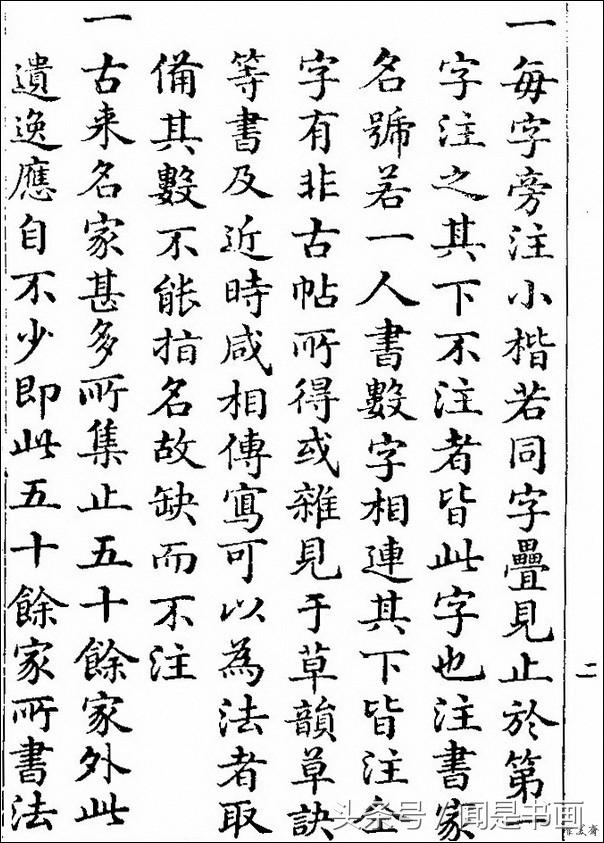 二
一每字旁注小楷若同字疊見止於第一
字注之其下不注者皆此字也注書家
名號若一人書數字相連其下皆注
字有非古帖所得或雜見于草韻草訣
等書及近時咸相傳寫可以為法者取
備其數不能指名故缺而不注
一古来名家甚多所集止五十餘家外此
遺逸應自不少即此五十餘家所書法
头条号 / 闻是书画